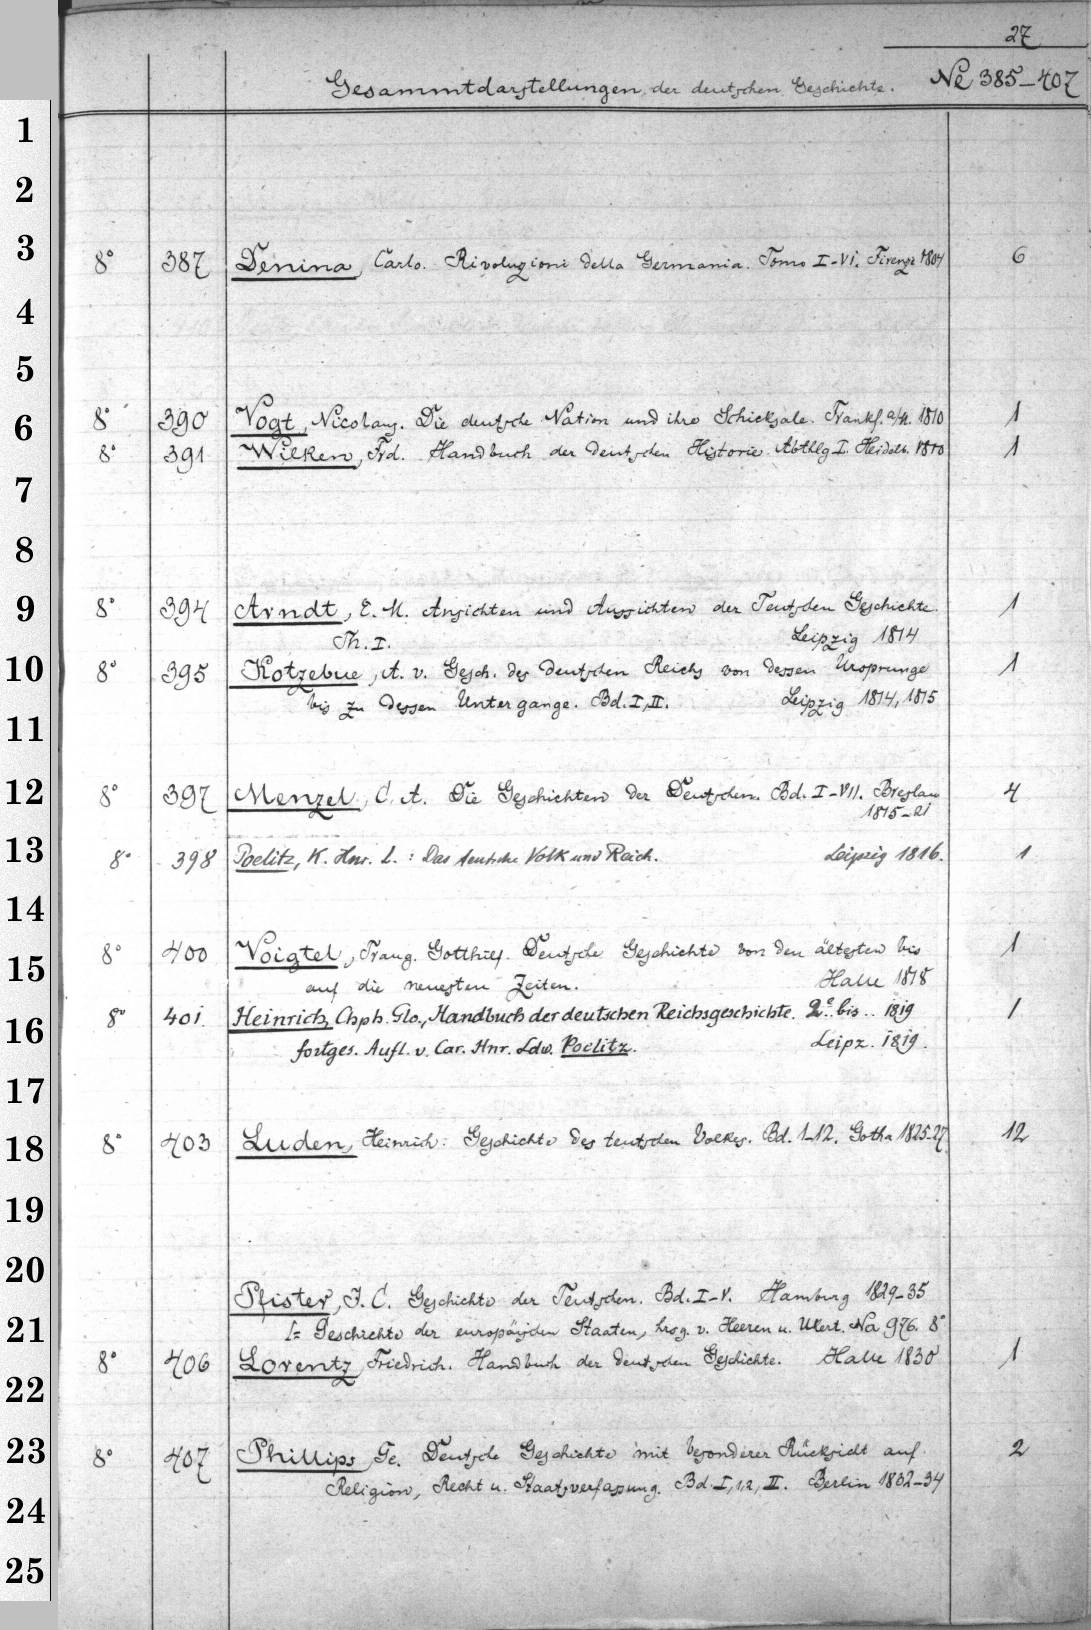 27
Gesammtdarstellungen der deutschen Geschichte. No 385-407
1
2
3 8° 387 Denina, Carlo. Rivoluzioni della Germania. Tomo I-VI. Firenze 1804 6
4
5
6 8° 390 Vogt, Nicolaus. Die deutsche Nation und ihre Schicksale. Frankf. a/M. 1810 1
8° 391 Wilken, Frd. Handbuch der deutschen Historie. Abthlg I. Heidelb. 1810 1
7
8
9 8° 394 Arndt, E. M. Ansichten und Aussichten der Teutschen Geschichte. 1
Th. I. Leipzig 1814
10 8° 395 Kotzebue, A. v. Gesch. des deutschen Reichs von dessen Ursprunge 1
bis zu dessen Untergange. Bd. I, II. Leipzig 1814, 1815
11
12 8° 397 Menzel, C. A. Die Geschichten der Deutschen. Bd. I-VII. Breslau 4
1815-21
13 8° 398 Poelitz, K. Hnr. L. : Das deutsche Volk und Reich. Leipzig 1816. 1
14
15 8° 400 Voigtel, Traug. Gotthilf. Deutsche Geschichte von den ältesten bis 1
auf die neuesten Zeiten. Halle 1818
16 8° 401 Heinrich, Chph. Glo., Handbuch der deutschen Reichsgeschichte. 2e bis .. 1819 1
fortges. Aufl. v. Car. Hnr. Ldw. Poelitz. Leipz. 1819.
17
18 8° 403 Luden, Heinrich: Geschichte des teutschen Volkes. Bd. 1-12. Gotha 1825-27 12
19
20
Pfister, J. C. Geschichte der Teutschen. Bd. I-V. Hamburg 1829-35
21 [= Geschichte der europäischen Staaten, hrsg. v. Heeren u. Ukert. Na 976. 8°
8° 406 Lorentz, Friedrich. Handbuch der deutschen Geschichte. Halle 1830 1
22
23 8° 407 Phillips, Ge. Deutsche Geschichte mit besonderer Rücksicht auf 2
Religion, Recht u. Staatsverfassung. Bd. I, 1,2, II. Berlin 1832-34
24
25